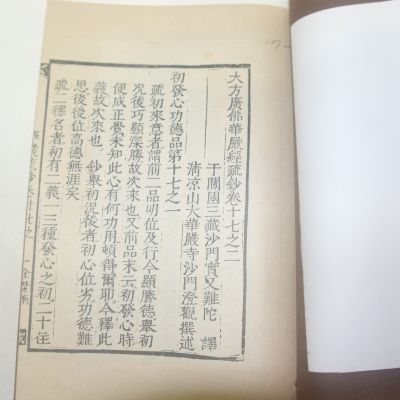 大方廣佛華嚴經疏鈔卷十七之二
于闐國三藏沙門實叉難陀 譯
清涼山大華嚴寺沙門澄觀撰述
初發心功德品第十七之一
疏初來意者謂前二品明位及行今顯勝德舉初
況後巧顯深勝故次來也又前品末云初發心時
便成正覺未知此心有何功用頓得爾耶今釋此
義故次來也 鈔舉初況後者初心位劣功德難
思後後位高德無涯矣
疏二釋名者初有二義一三種發心之初二十住
卷十七之